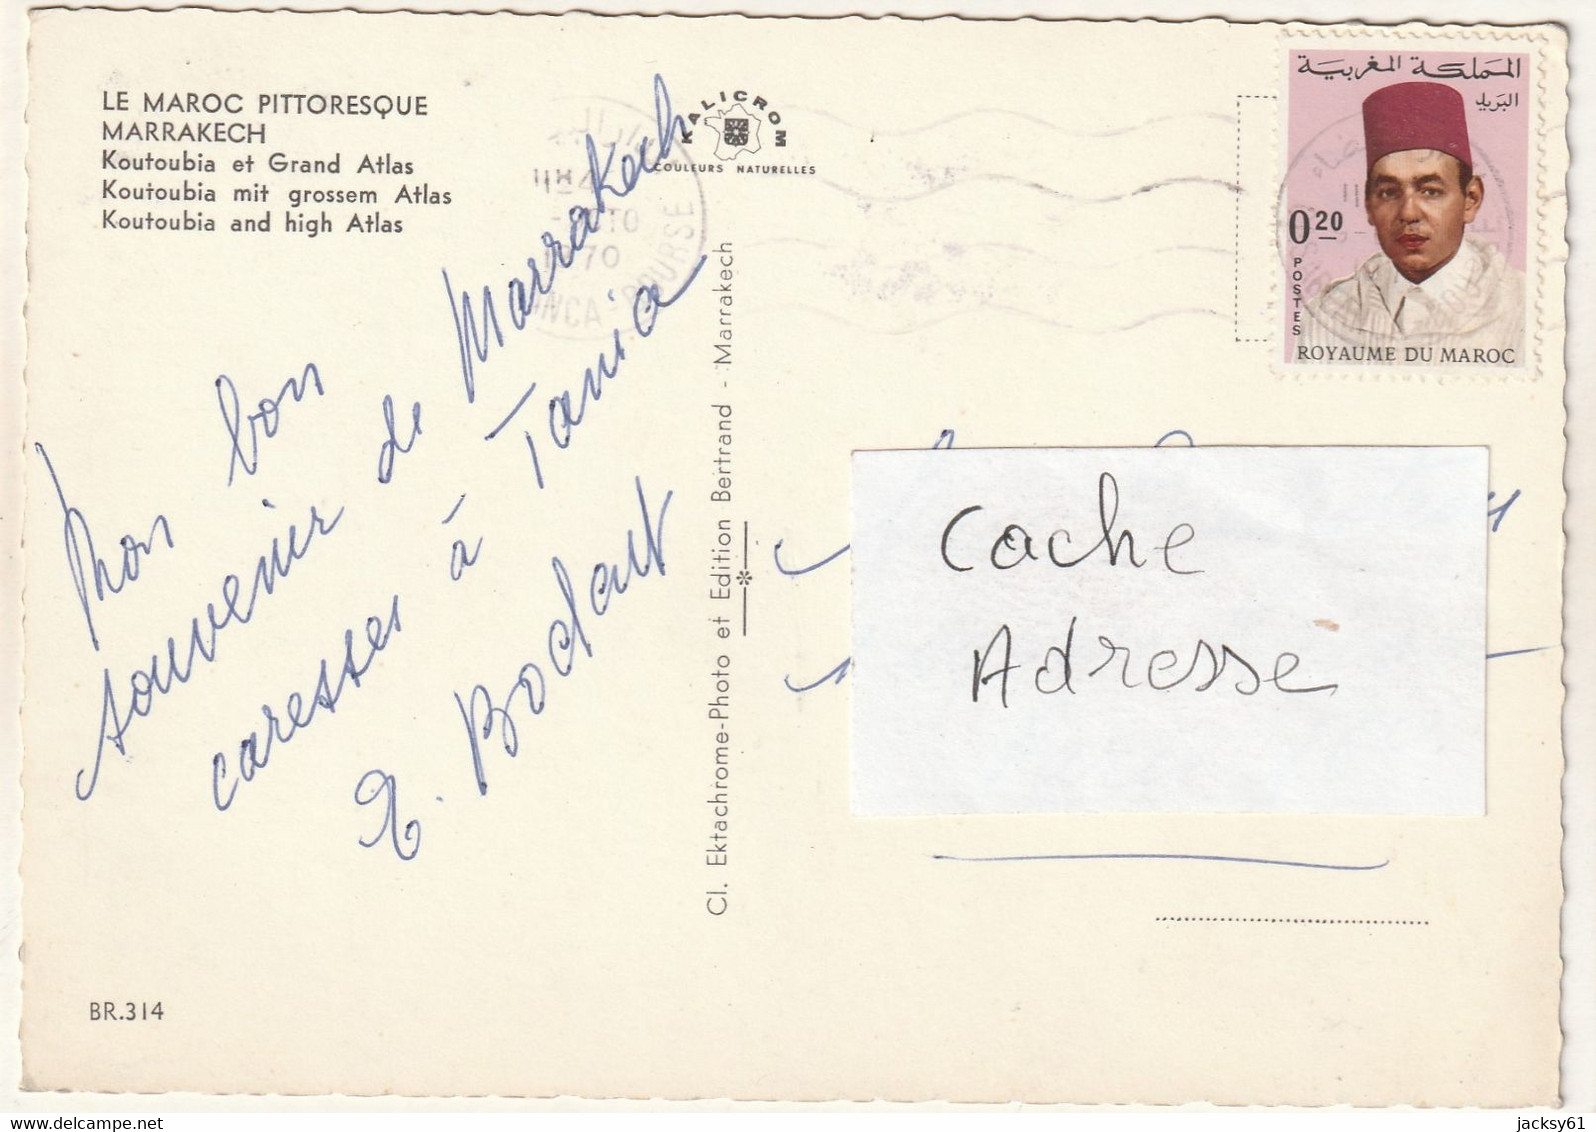 LE MAROC PITTORESQUE
MARRAKECH
Koutoubia et Grand Atlas
Koutoubia mit grossem Atlas
Koutoubia and high Atlas
KALICROM
COULEURS NATURELLES
1970
BOURSE
المملكة المغربية
البريد
0.20
POSTES
ROYAUME DU MAROC
Mon bon
souvenir de Marrakech
caresses à Tania
E. Bodart
Cl. Ektachrome-Photo et Edition Bertrand - Marrakech
Cache
Adresse
BR.314
jacksy61